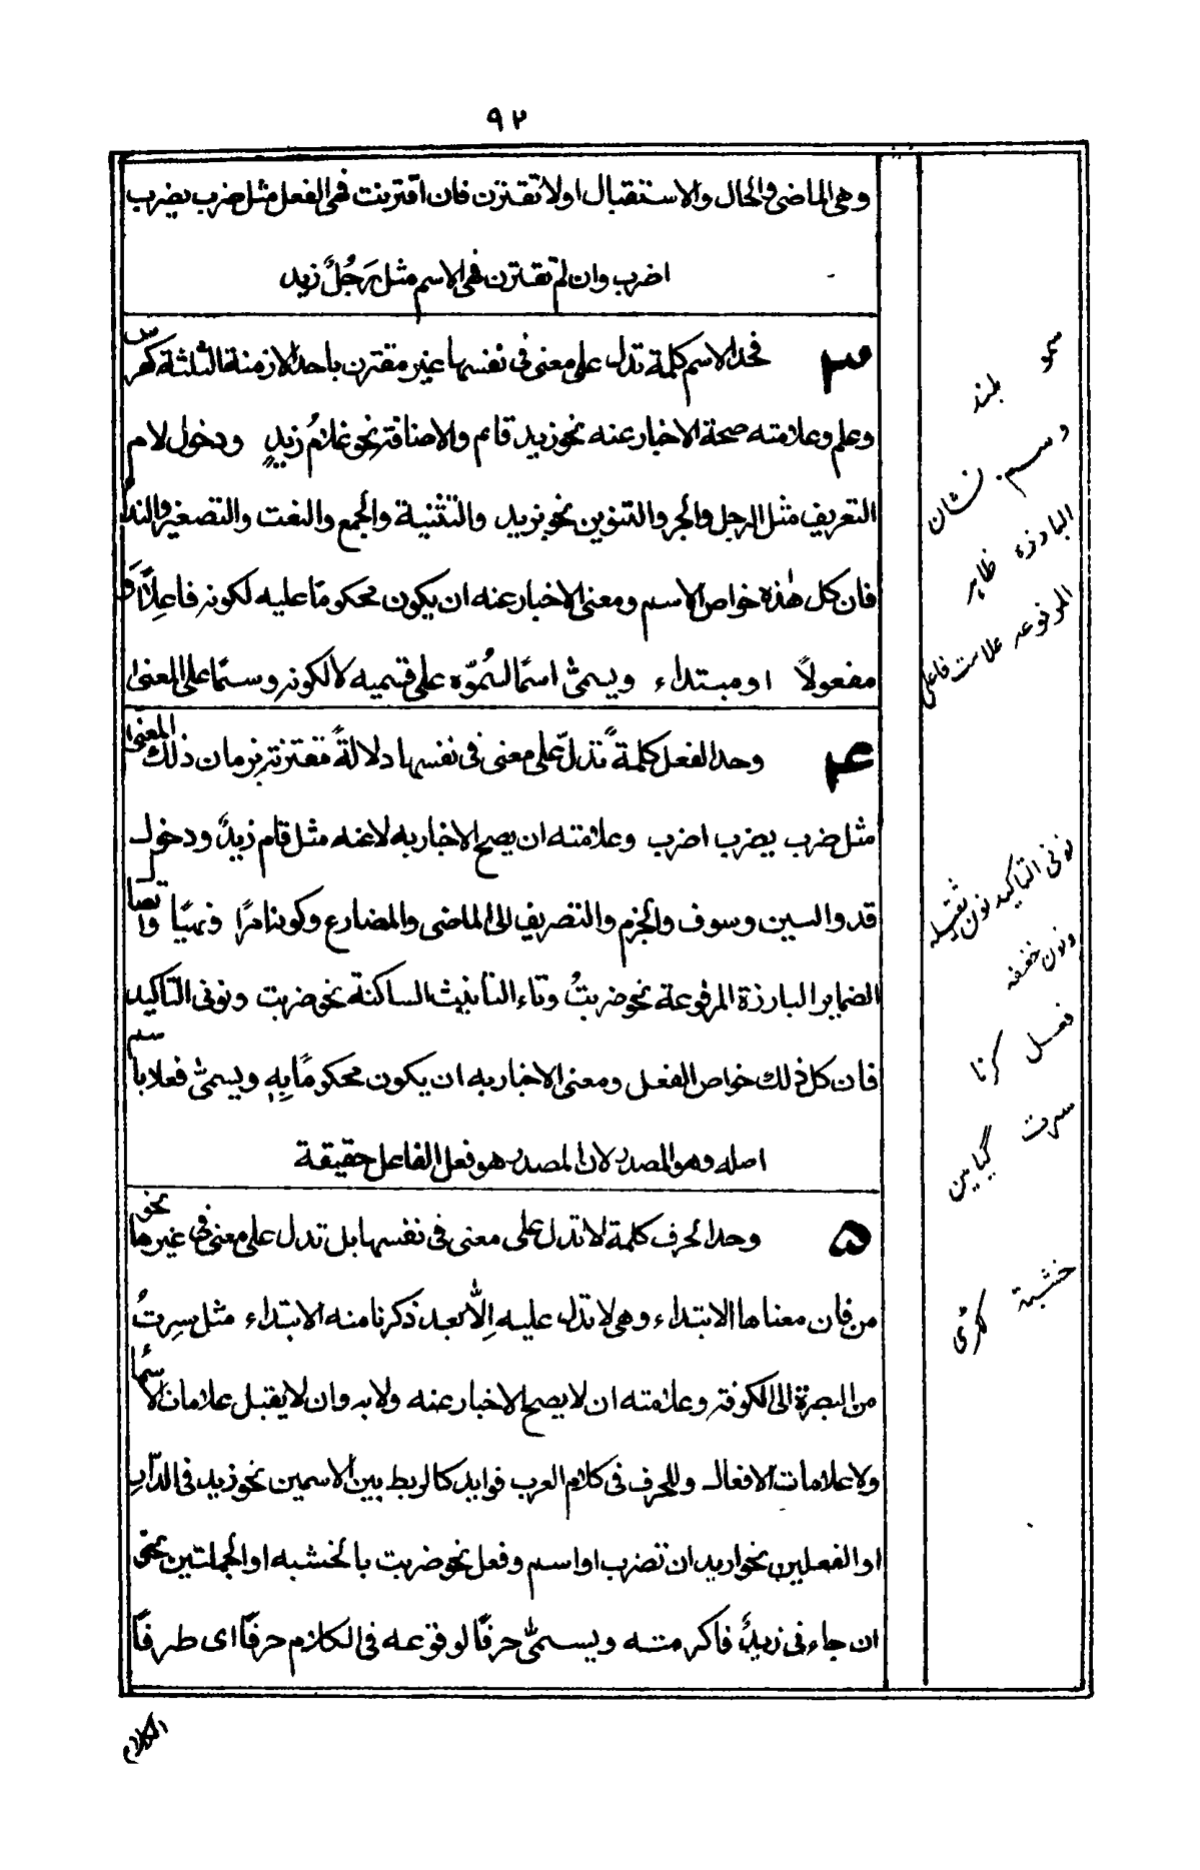 ٩٢
وهی الماضی والحال والاستقبال اولا تقترن فان اقترنت فهی الفعل مثل ضرب یضرب
اضرب وان لم تقترن فهی الاسم مثل رَجُلٌ زید
٣ فحد الاسم کلمة تدل علی معنی فی نفسها غیر مقترن باحد الازمنة الثلثة کفرس
وعلم وعلامته صحة الاخبار عنه نحو زید قائم والاضافة نحو غلامُ زیدٍ ودخول لام
التعریف مثل الرجل والجر والتنوین نحو بزید والتثنیة والجمع والنعت والتصغیر والنداء
فان کل هٰذه خواص الاسم ومعنی الاخبار عنه ان یکون محکومًا علیه لکونه فاعلًا او
مفعولًا او مبتداء ویسمّٰی اسمًا لسُموّه علی قسمیه لا لکونه وسمًا علی المعنیٰ
٤ وحد الفعل کلمةً تدلّ علی معنی فی نفسها دلالةً مقترنة بزمان ذلك المعنیٰ
مثل ضرب یضرب اضرب وعلامته ان یصح الاخبار به لا عنه مثل قام زیدٌ ودخول
قد والسین وسوف والجزم والتصریف الی الماضی والمضارع وکونه امرًا ونهیًا واتصال
الضمایر البارزة المرفوعة نحو ضربتُ وتاء التانیث الساکنة نحو ضربت ونونی التاکید
فان کل ذلك خواص الفعل ومعنی الاخبار به ان یکون محکومًا بِهٖ ویسمّٰی فعلا باسم
اصله وهو المصدر لان المصدر هو فعل الفاعل حقیقة
٥ وحد الحرف کلمة لا تدل علی معنی فی نفسها بل تدل علی معنی فی غیرها نحو
من فان معناها الابتداء وهی لا تدل علیه اِلّا بعد ذکر ما منه الابتداء مثل سِرتُ
من البصرة الی الکوفة وعلامته ان لا یصح الاخبار عنه ولا به وان لا یقبل علامات الاسماء
ولا علامات الافعال وللحرف فی کلام العرب فواید کالربط بین الاسمین نحو زید فی الدّارِ
او الفعلین نحو ارید ان تضرب او اسم وفعل نحو ضربت بالخشبه او الجملتین نحو
ان جاء نی زیدٌ فاکرمته ویسمّٰی حرفًا لوقوعه فی الکلام حرفًا ای طرفًا
الکلام
سمو بلند
وسم نشان
البارزه ظاہر
المرفوعه علامت فاعلی
نونی التاکید نون ثقیله
ونون خفیفه
فعل کرنا
سرت گیا مین
خشبة لکڑی